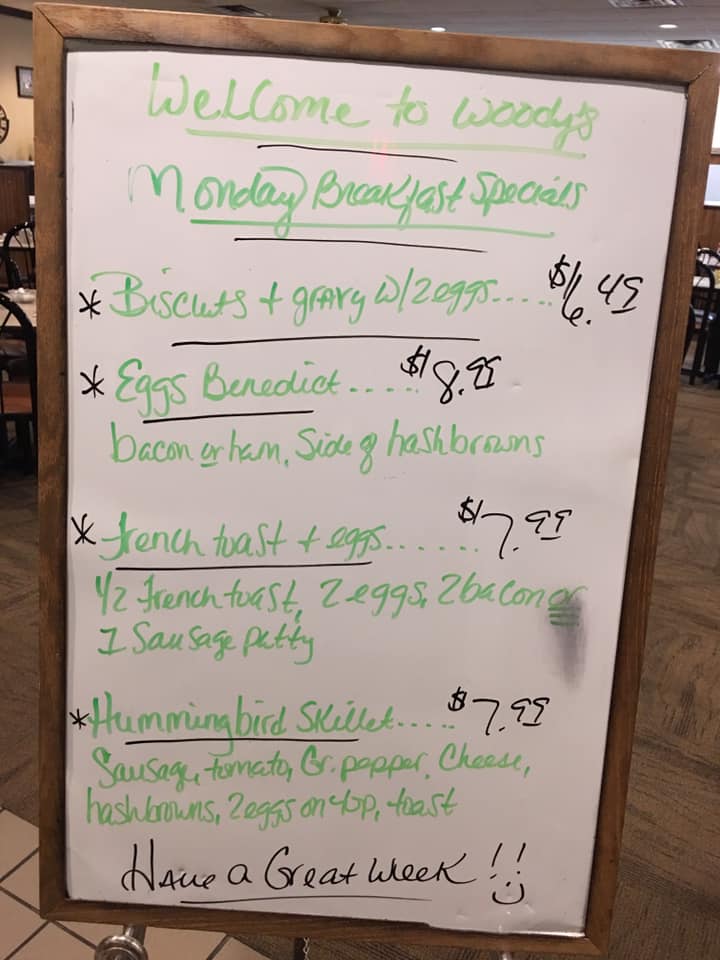 Welcome to Woody's
Monday Breakfast Specials
* Biscuts + gravy w/2eggs..... $6.49
* Eggs Benedict..... $8.99
bacon or ham, Side of hashbrowns
* french toast + eggs....... $7.99
1/2 french toast, 2 eggs, 2 bacon or
1 Sausage patty
* Hummingbird Skillet..... $7.99
Sausage, tomato, Gr. pepper, Cheese,
hashbrowns, 2eggs on top, toast
Have a Great Week !!